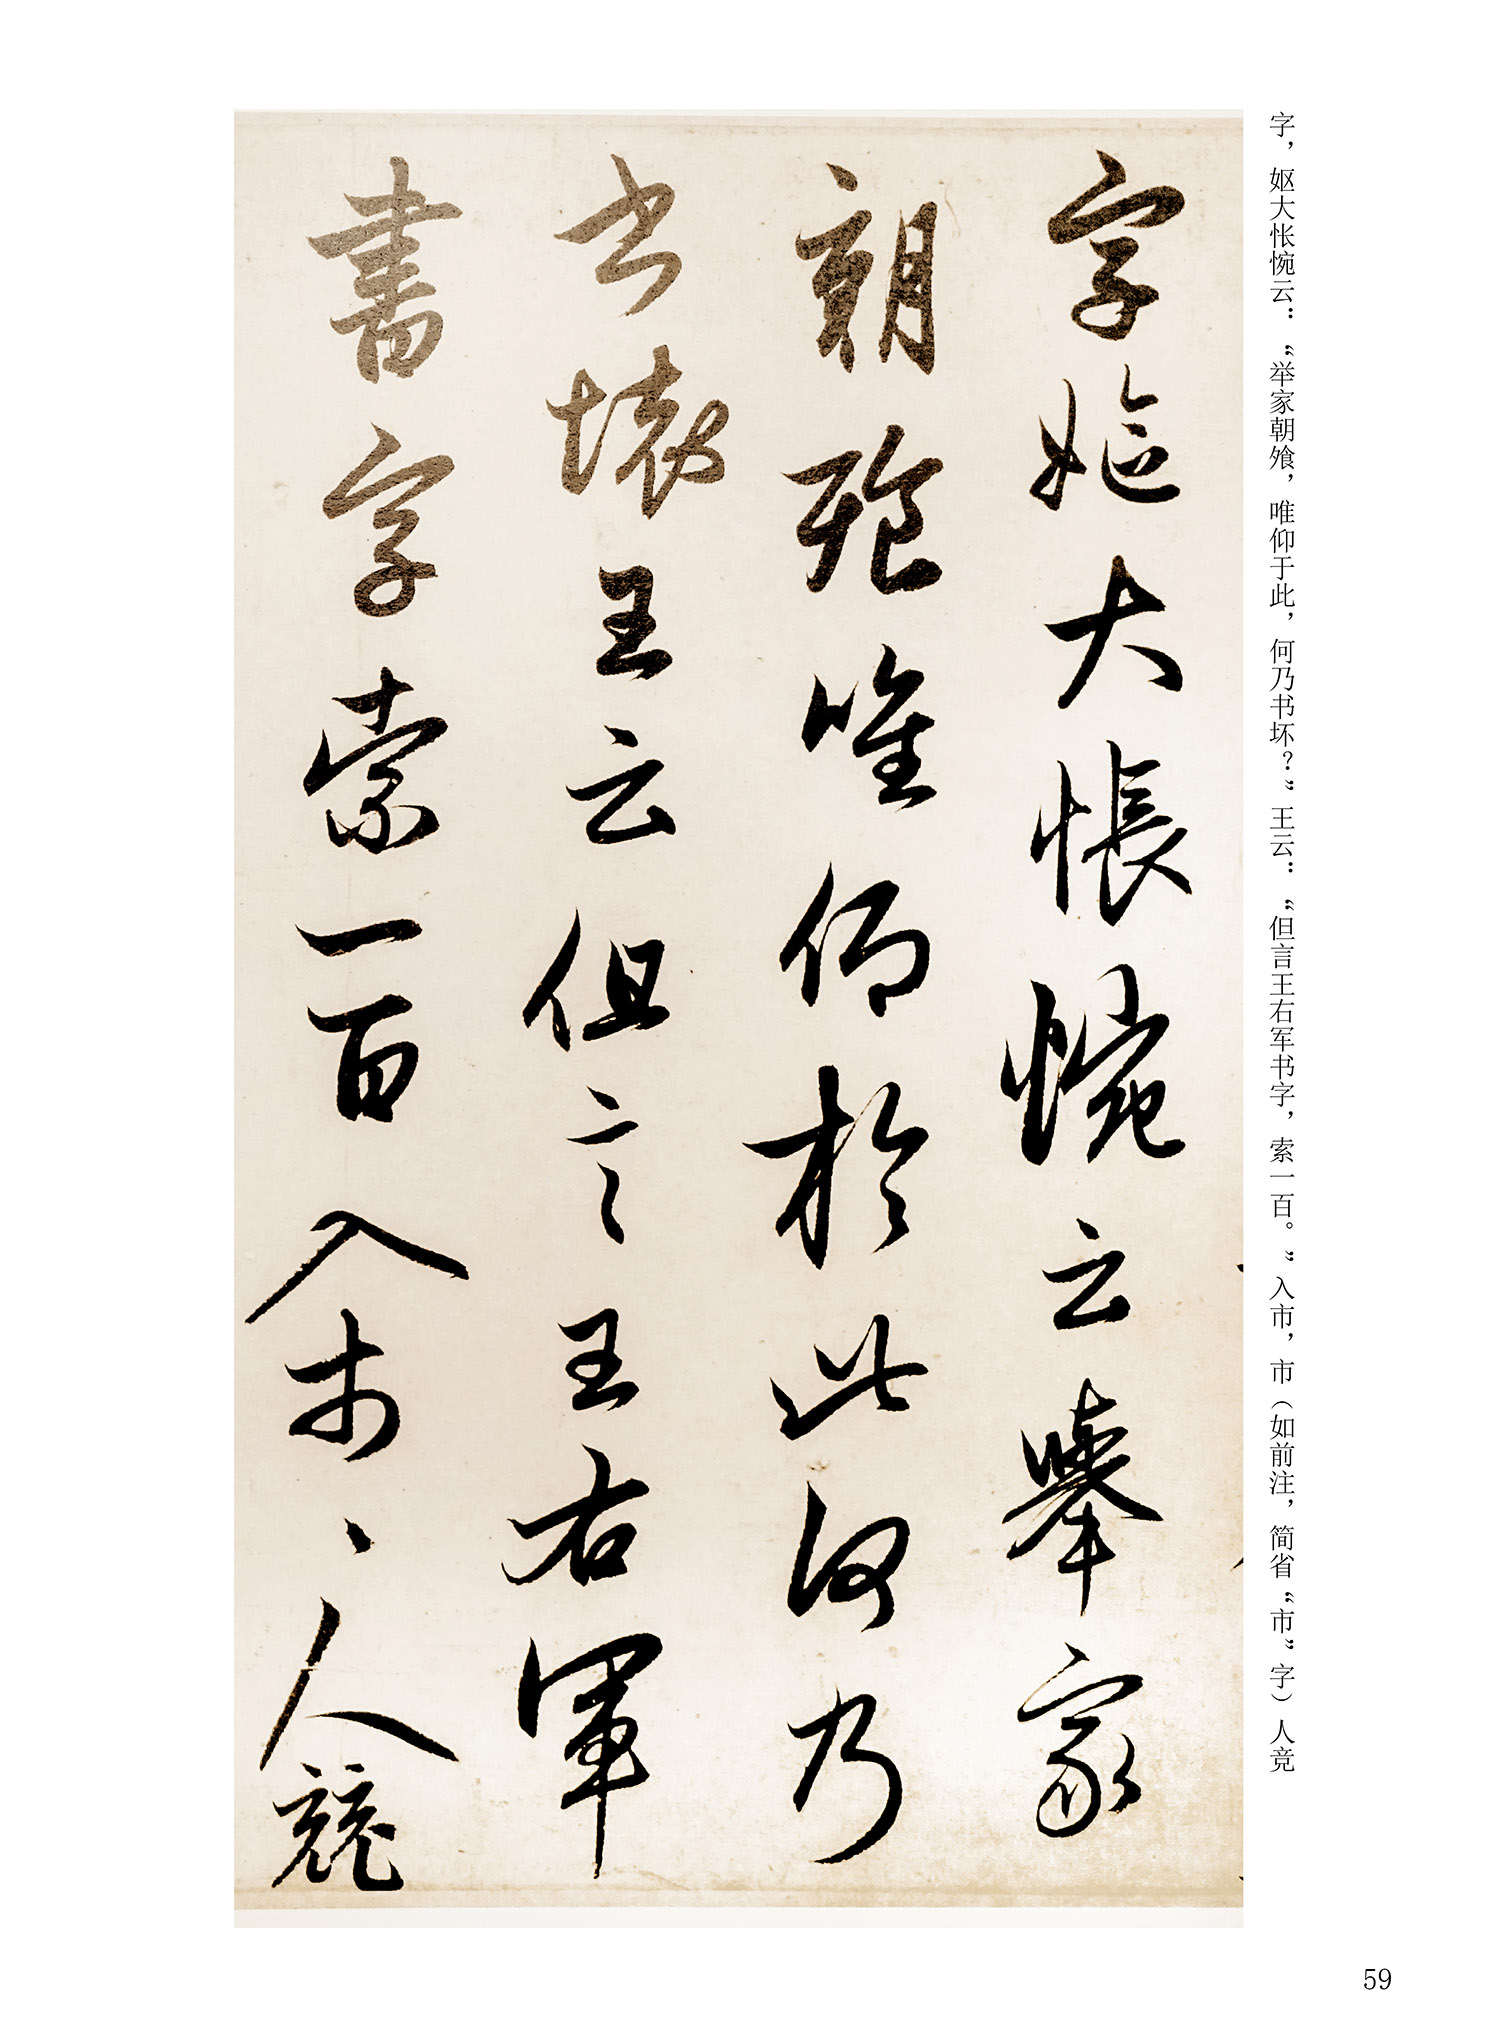 字，妪大怅惋云：“举家朝飧，唯仰于此，何乃书坏？”王云：“但言王右军书字，索一百。”入市，市（如前注，简省“市”字）人竞
字嫗大悵惋云舉家
朝飧唯仰於此何乃
書壞王云但言王右軍
書字索一百入市、人競
59